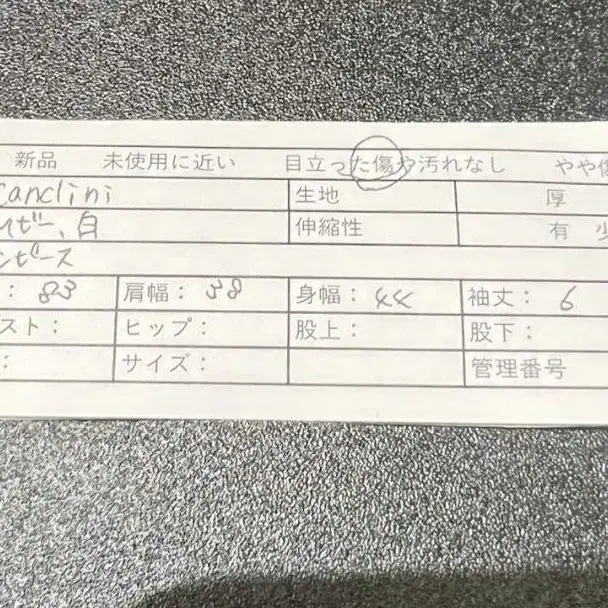 新品 未使用に近い 目立った傷や汚れなし やや傷
Canclini 生地 厚
イビー、白 伸縮性 有 少
ンピース
: 83 肩幅: 38 身幅: 44 袖丈: 6
スト: ヒップ: 股上: 股下:
: サイズ: 管理番号